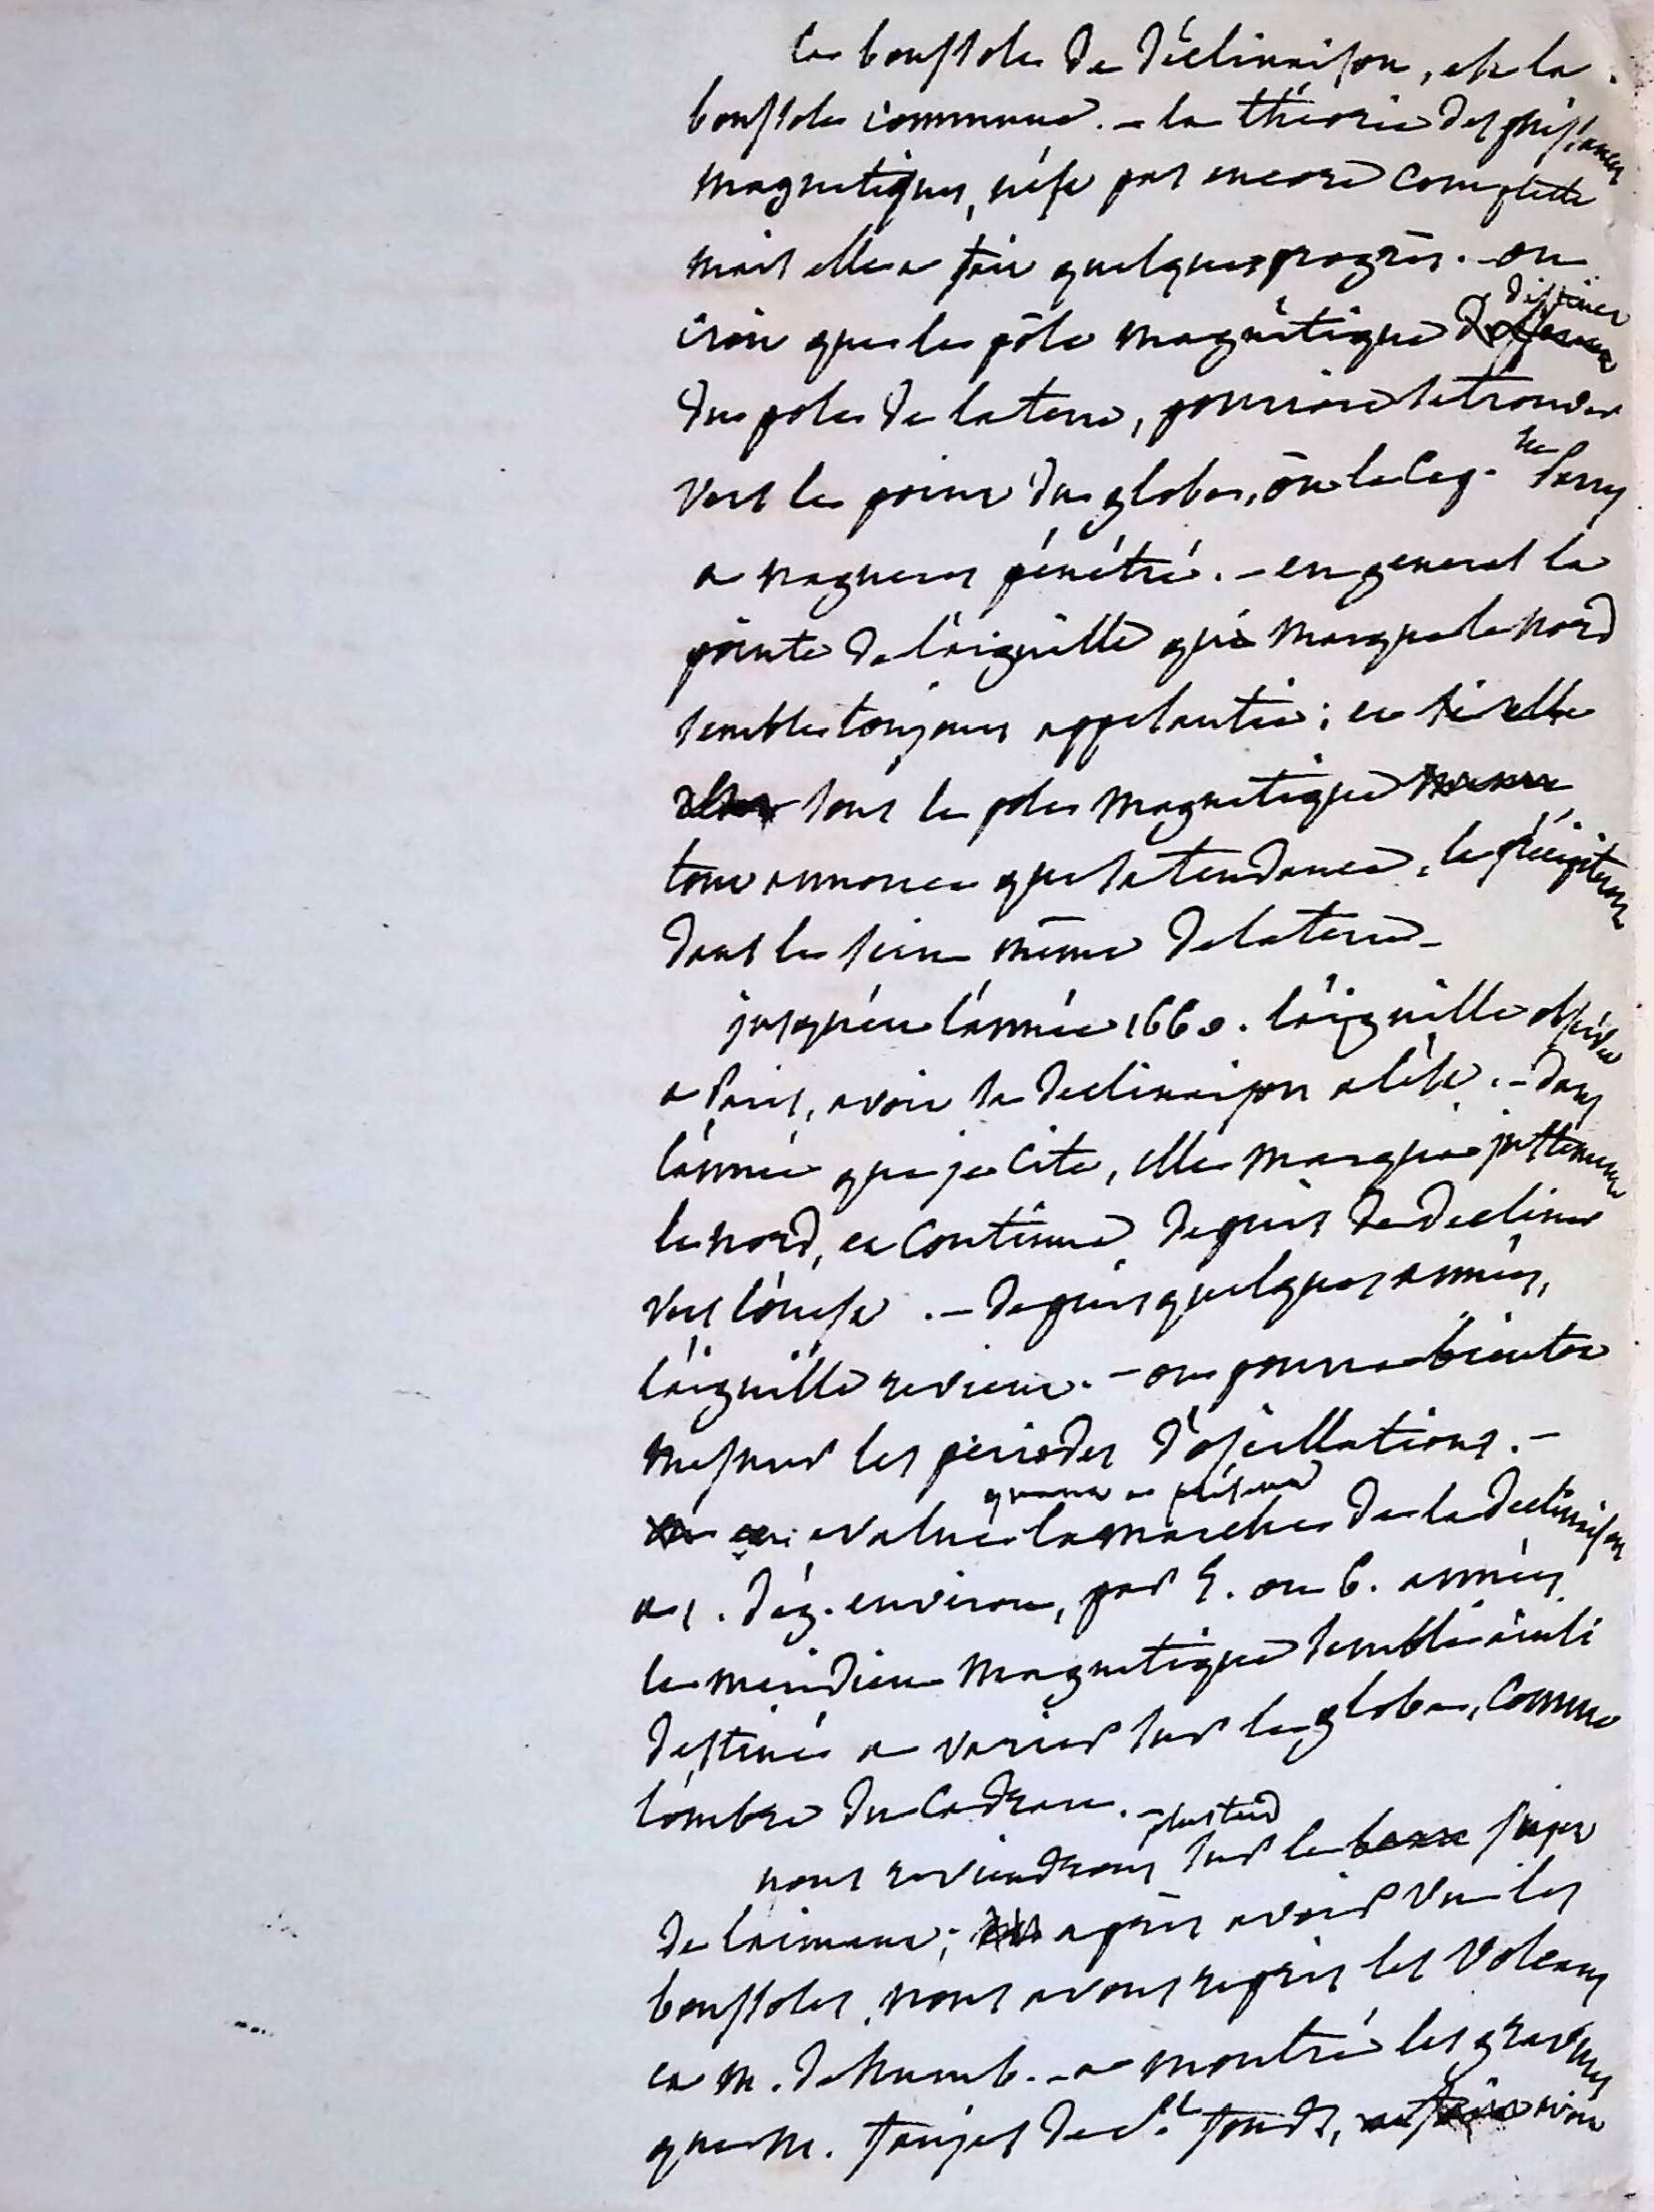 la boussole de déclinaison, est la
boussole commune. - la théorie des puissances
magnetiques, n'est pas encore complette
mais elle a fait quelques progrès. - on
croit que le pôle magnétique différent
du pole de la terre, pourroit se trouver
vers le point du globe, où le Cap. ne Parry
a naguères pénétré. - en general la
pointe de l'aiguille qui marque le nord
semble toujours appesantie; et si elle
sous le pole magnetique
tout annonce que sa tendance, la précipiteroit
dans le sein même de la terre -
jusqu'en l'année 1660. l'aiguille observée
a Paris, avoit sa declinaison a l'est. - dans
l'année que je cite, elle marqua justement
le nord, et continua depuis de decliner
vers l'ouest. - depuis quelques années,
l'aiguille revient. - on pourra bientot
mesurer les périodes d'oscillations. -
quant a présent
on evalue la marche de la declinaison
a 1. dég. environ, par 5. ou 6. années.
le meridien magnetique semble ainsi
destiné a varier sur le globe, comme
l'ombre du cadran. -
plus tard
nous reviendrons sur le beau sujet
de l'aimant; après avoir vu les
boussoles, nous avons repris les volcans
et M. de humb. - a montré les gravures
que M. faujas de St. fonds, avoit